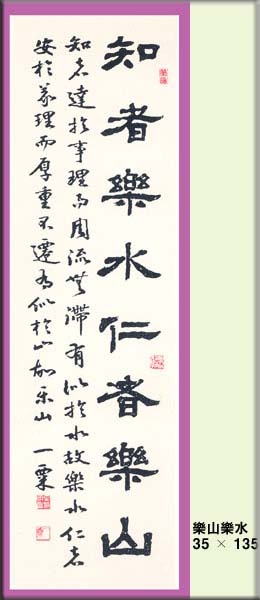 知者樂水仁者樂山
知者達於事理而周流無滯有似於水故樂水仁者
安於義理而厚重不遷有似於山故樂山 一粟
樂山樂水
35 × 135